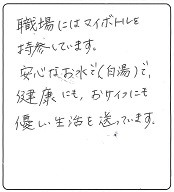 職場にはマイボトルを
持参しています。
安心なお水で(白湯)で、
健康にも、おサイフにも
優しい生活を送っています。